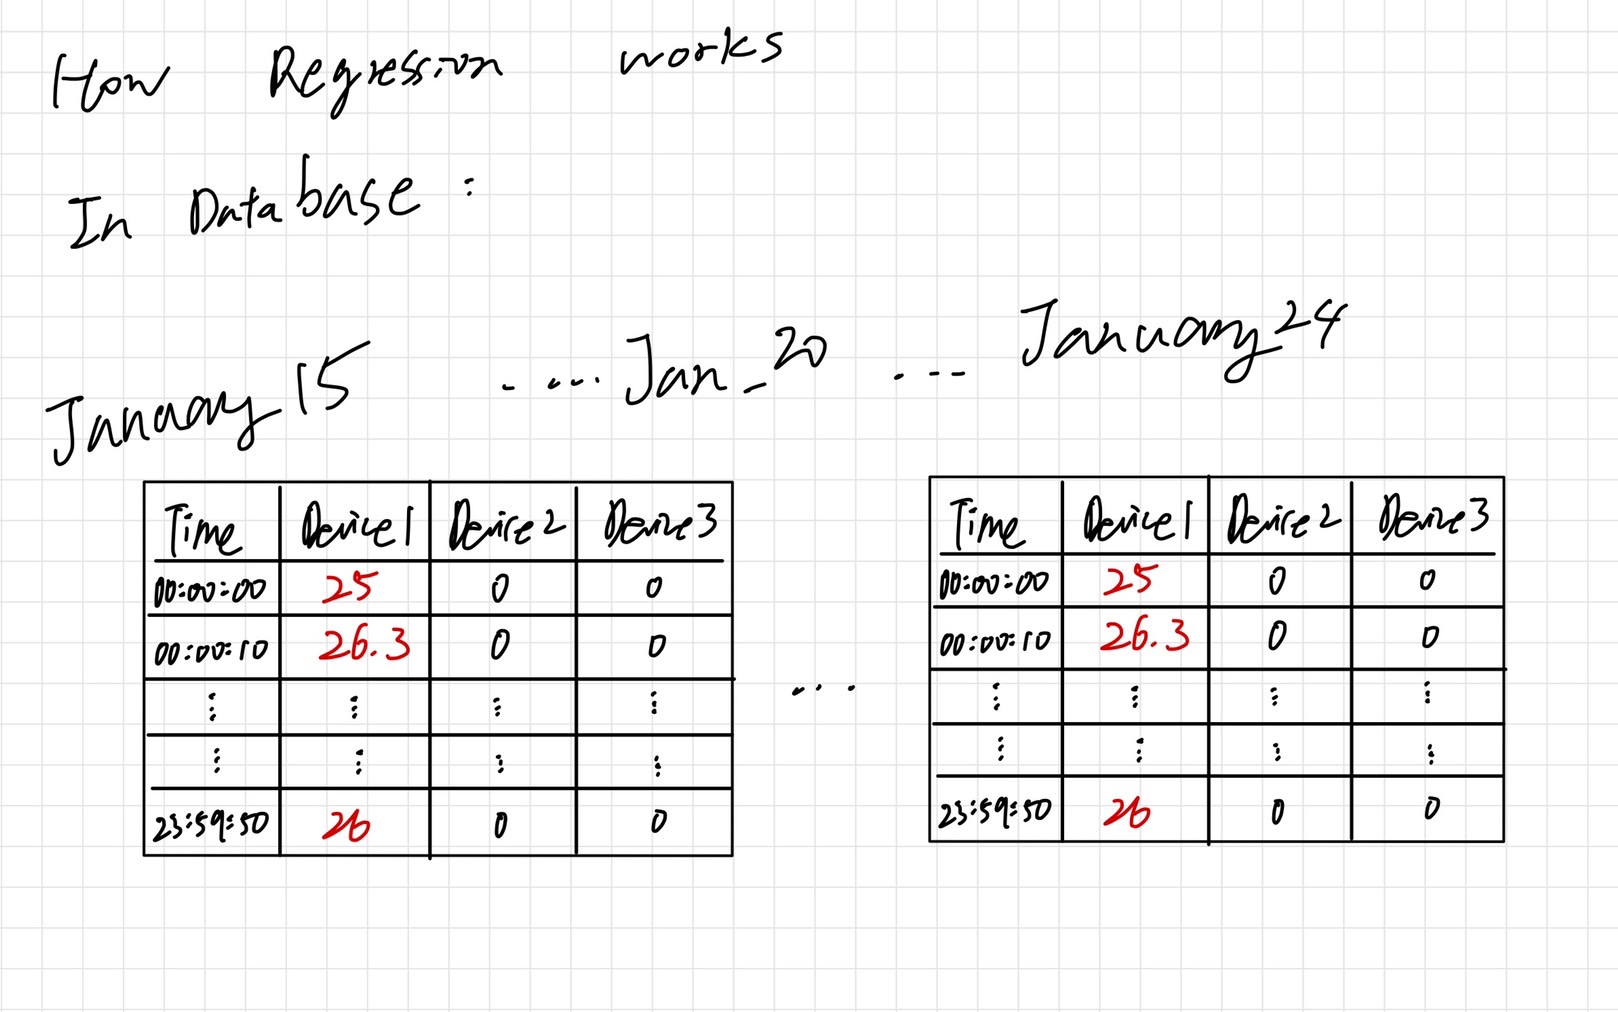 How Regression works
In Database :
January 15 ..... Jan_20 .... January 24
Time Device1 Device2 Device3
00:00:00 25 0 0
00:00:10 26.3 0 0
⋮ ⋮ ⋮ ⋮
⋮ ⋮ ⋮ ⋮
23:59:50 26 0 0
...
Time Device1 Device2 Device3
00:00:00 25 0 0
00:00:10 26.3 0 0
⋮ ⋮ ⋮ ⋮
⋮ ⋮ ⋮ ⋮
23:59:50 26 0 0